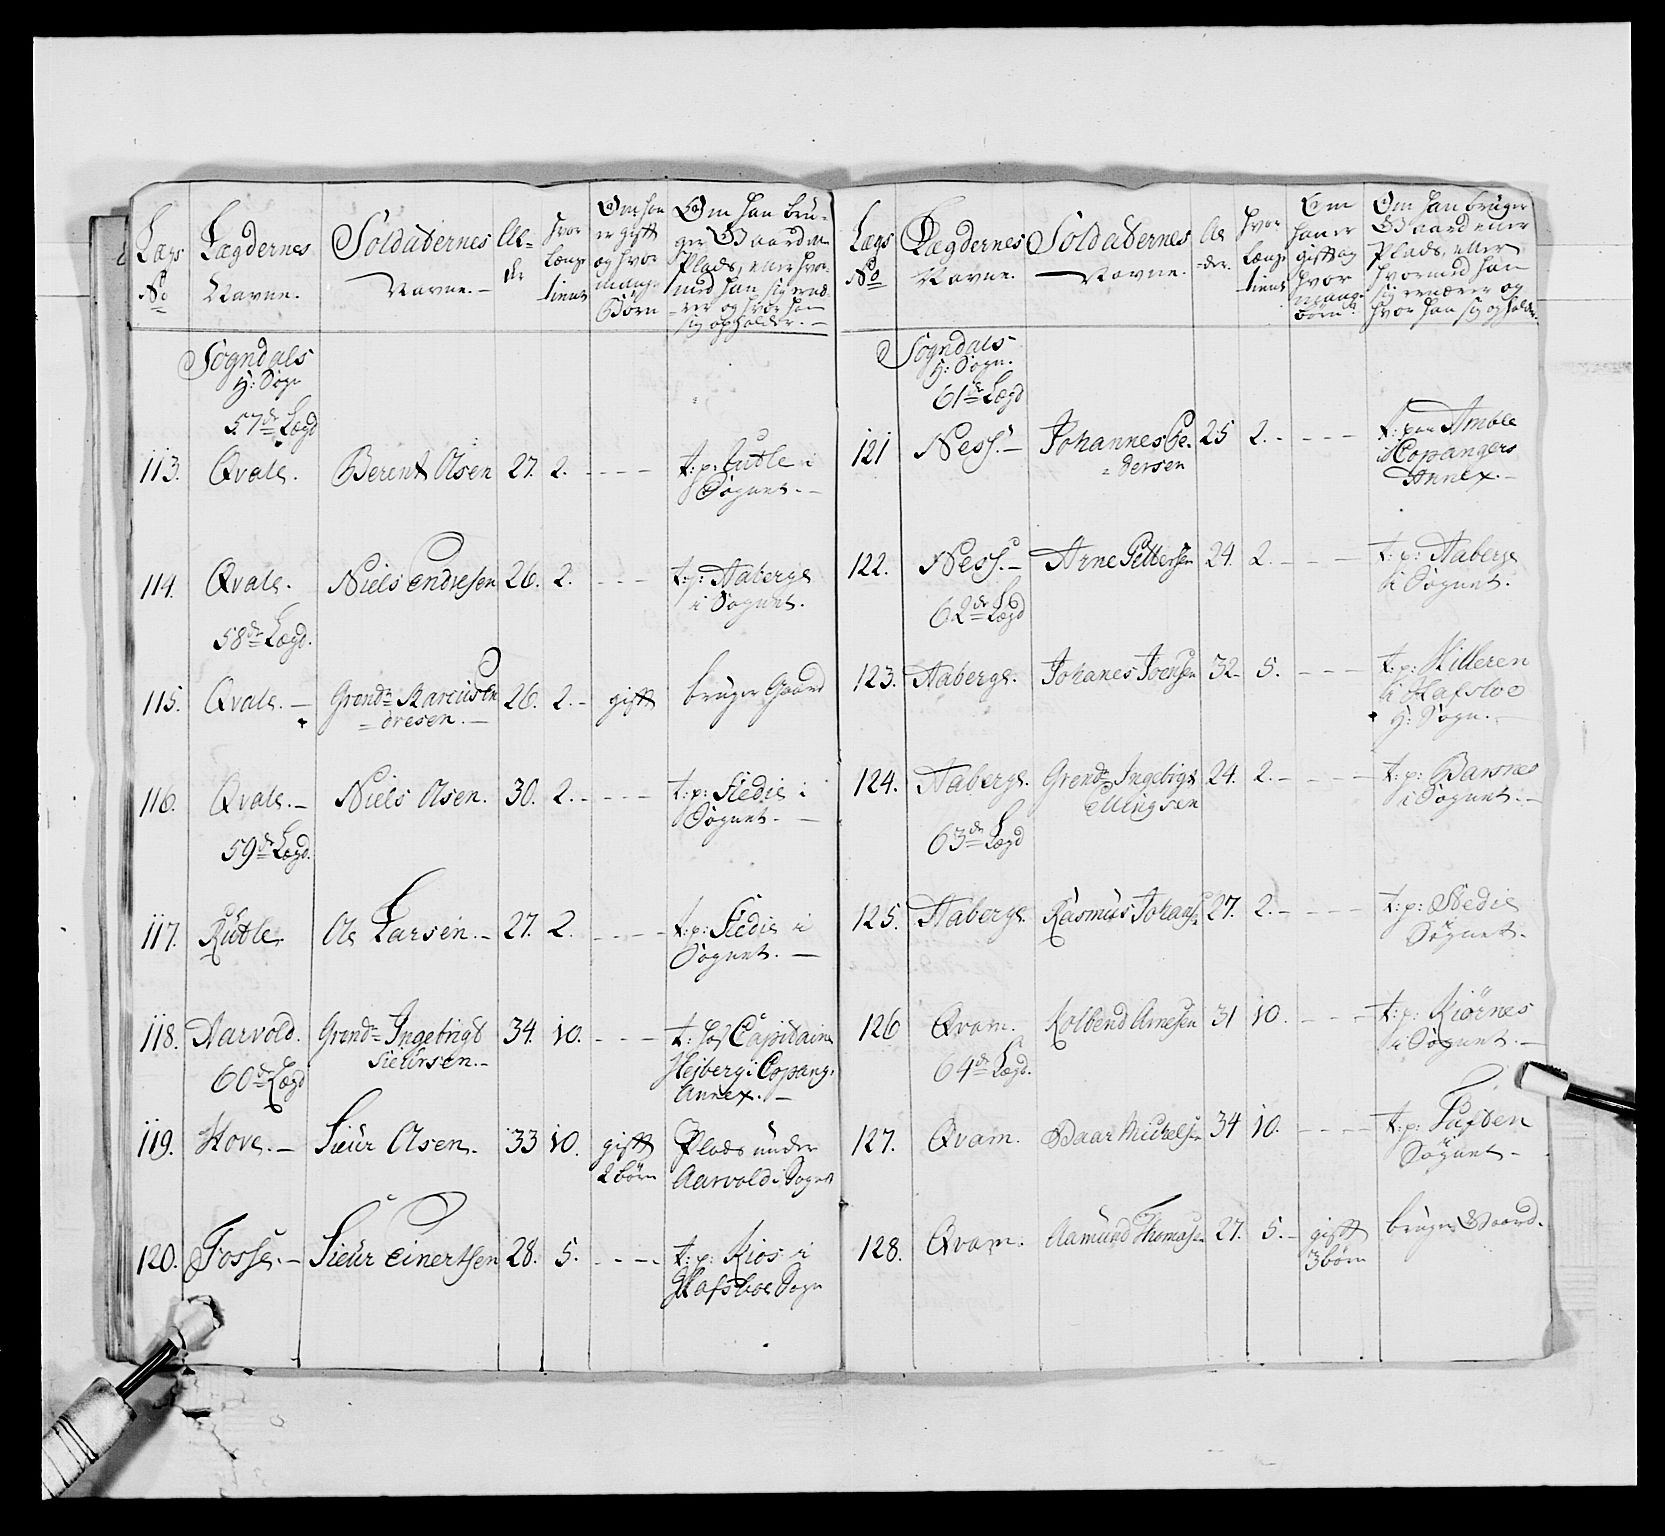 Lægs No
Lægdernes Navne.
Soldaternes Navne.
Al- der
hvor længe tient
Om han er gift og hvor mange Börn
Om han bru- ger Gaard eller Plads, eller hvor- med han sig ernæ- rer og hvor han sig opholder.
Sogndals
H: Sogn
57de Lægd
113. Qvale. Berent Olsen 27. 2. - - - t: p: Rutle i Sognet.
114. Qvale. Niels Endresen 26. 2. - - - t: p: Aaberge i Sognet.
58de Lægd.
115. Qvale. Grend= Marcus En =dresen. 26. 2. gift bruger Gaard
116. Qvale. Niels Olsen. 30. 2. - - - t: p: Stedie i Sognet.
59de Lægd.
117. Rutle. Ole Larsen. 27. 2. - - - t: p: Stedie i Sognet.
118. Aarvold. Grend= Ingebrigt Sieursen. 34. 10. - - - t: hos Capitain Hejberg i Copang. Annex.
60de Lægd
119. Hove. Sieur Olsen. 33 10. gift 2 børn Plads under Aarvold i Sognet
120. Fosse. Sieur Einertsen 28. 5. - - - t: p: Kios i Hafsloe Sogn
Lægs No
Lægdernes Navne.
Soldaternes Navne.
Al =der.
hvor længe tient
Om han er gift og hvor mange børn
Om han bruger Gaard eller Plads, eller hvormed han sig ernærer og hvor han sig opholder.
Sogndals
H: Sogn.
61de Lægd
121 Ness. Johannes Pe- =dersen 25 2. - - - t: paa Amble i Copangers Annex.
122. Ness. Arne Pettersen 24. 2. - - - t: p: Aaberge i Sognet.
62de Lægd
123. Aaberge. Johanes Joensen 32. 5. - - - t: p: Hilleren i Hafsloe H: Sogn.
124. Aaberge. Grend= Ingebrigt Ellingsen 24. 2. - - - t: p: Barsnes i Sognet.
63de Lægd
125. Aaberge. Rasmus Johans: 27. 2. - - - t: p: Stedie Sognet.
126 Qvam. Kolbend Arnesen 31 10. - - - t: p: Kiörnes i Sognet.
64de Lægd.
127. Qvam. Daar Michelsen 34 10. - - - t: p: Tuften Sognet
128. Qvam. Aamund Thomas: 27. 5. gift 3 börn bruger Gaard.